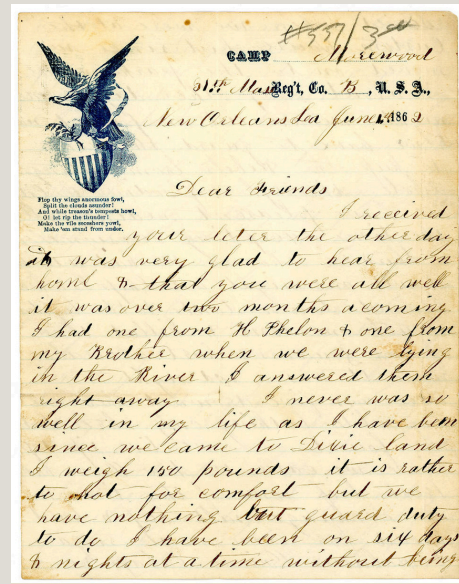 CAMP Morewood
31st Mass Reg't, Co. B, U. S. A.,
New Orleans La June 186 2
Flop thy wings enormous fowl,
Split the clouds asunder!
And while treason's tempests howl,
O! let rip the thunder!
Make the vile seceshers yowl,
Make 'em stand from under.
Dear Friends
I received
your leter the other day
was very glad to hear from
home & that you were all well
it was over two months acoming
I had one from H Phelon & one from
my Brother when we were lying
in the River I answered them
right away I never was so
well in my life as I have been
since we came to Dixie land
I weigh 150 pounds it is rather
to hot for comfort but we
have nothing but guard duty
to do I have been on six days
& nights at a time without being